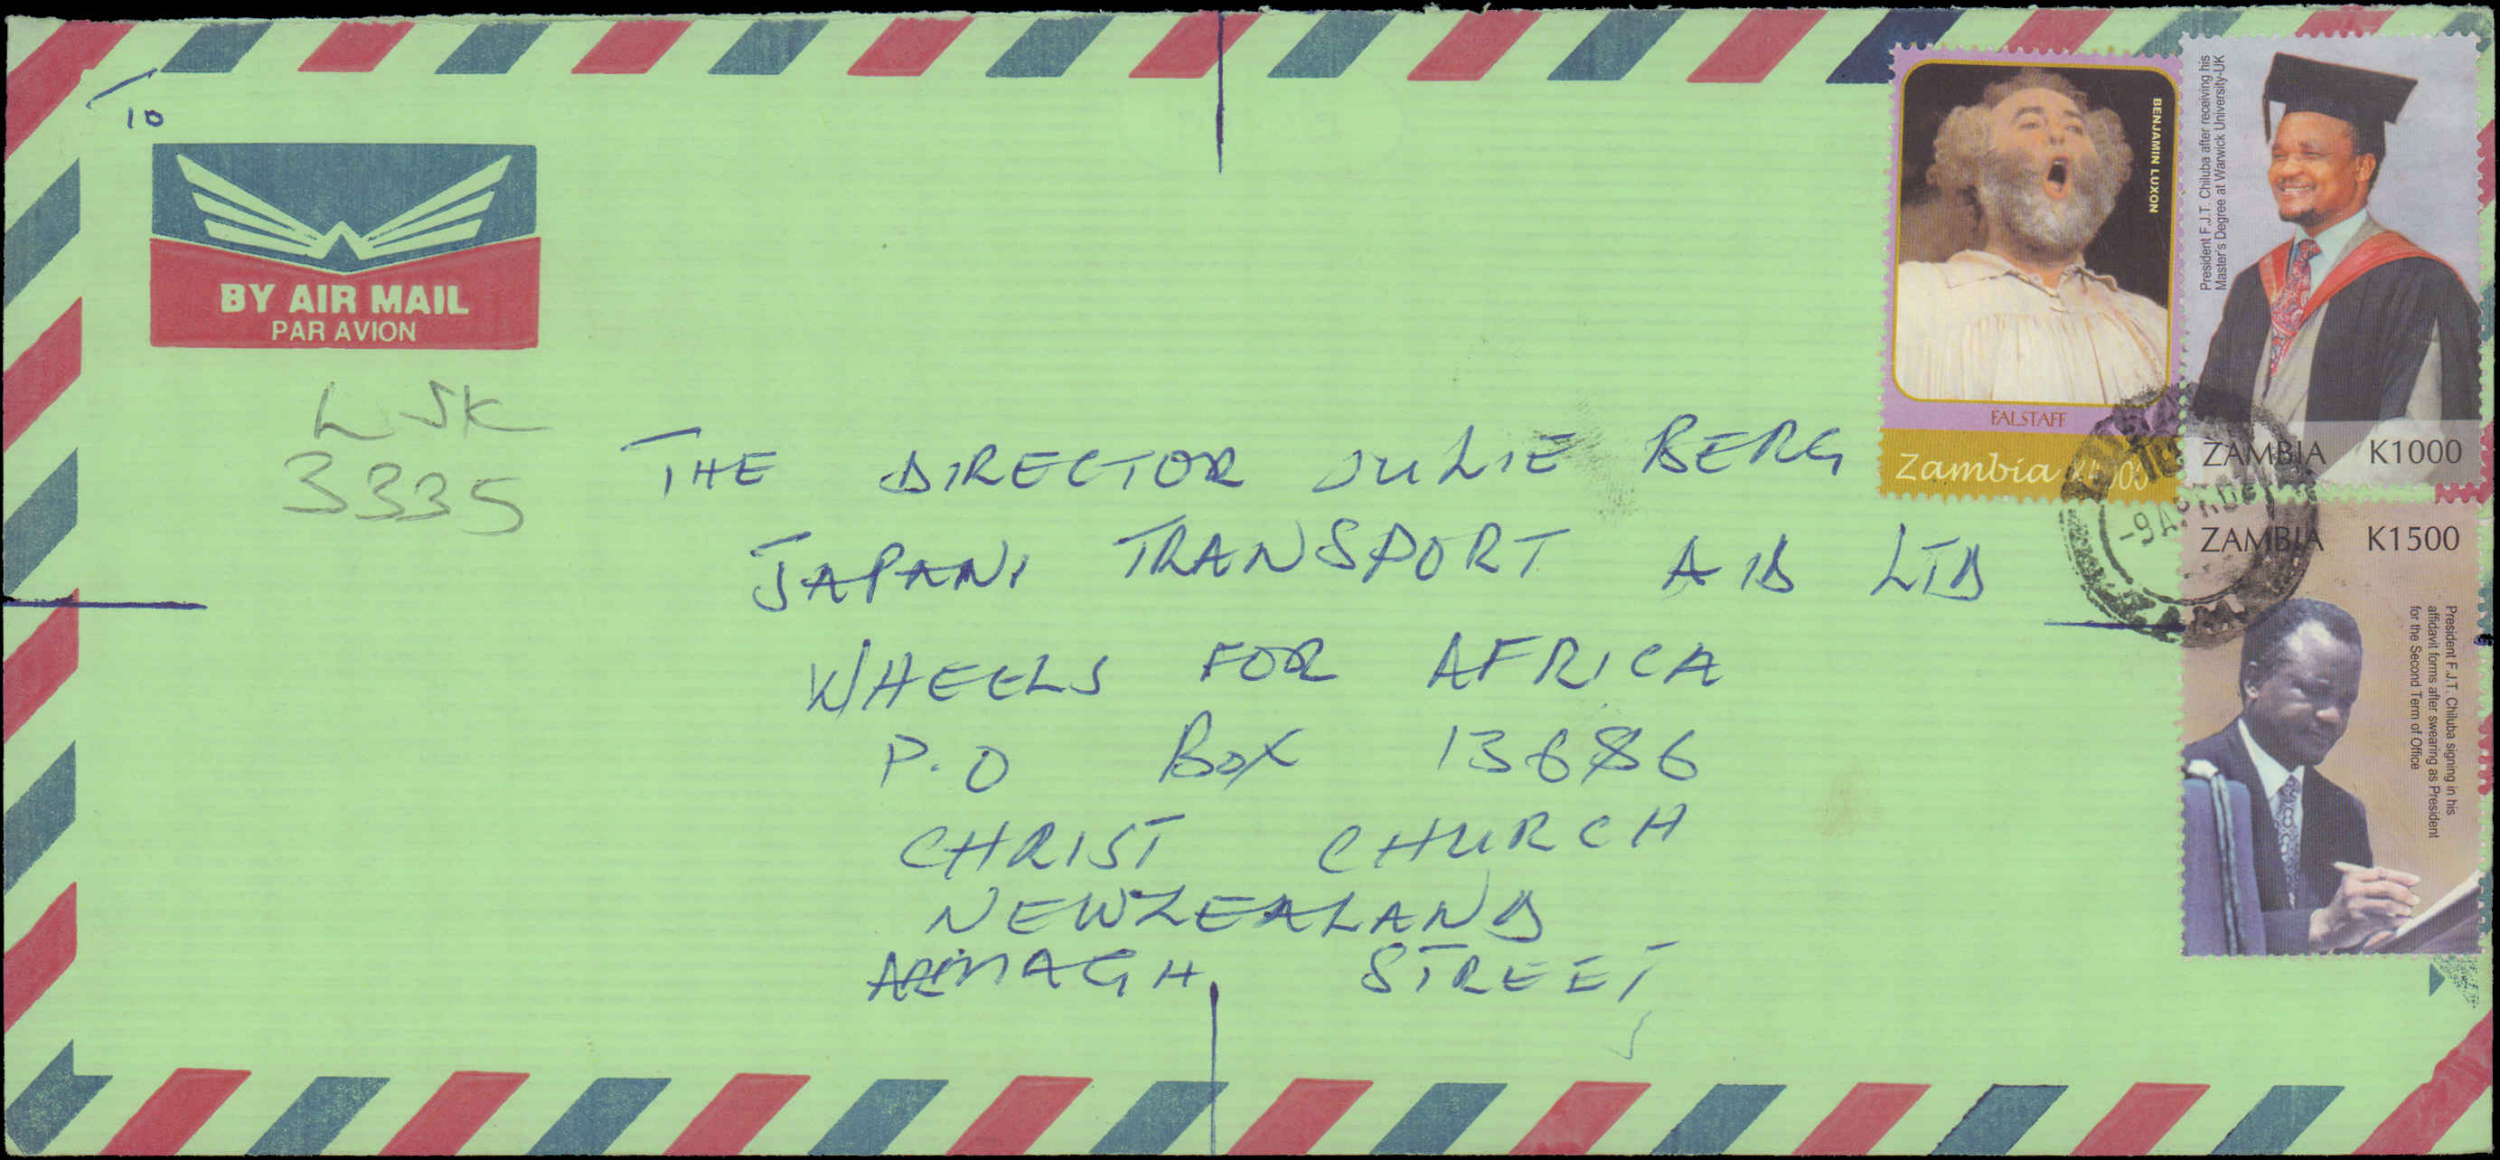 10
BY AIR MAIL
PAR AVION
LSK
3335
THE DIRECTOR JULIE BERG
JAPANI TRANSPORT AID LTD
WHEELS FOR AFRICA
P.O BOX 13686
CHRIST CHURCH
NEWZEALAND
ARMAGH STREET
BENJAMIN LUXON
FALSTAFF
Zambia
President F.J.T. Chiluba after receiving his
Master's Degree at Warwick University-UK
ZAMBIA K1000
ZAMBIA K1500
President F.J.T. Chiluba signing in his
affidavit forms after swearing as President
for the Second Term of Office